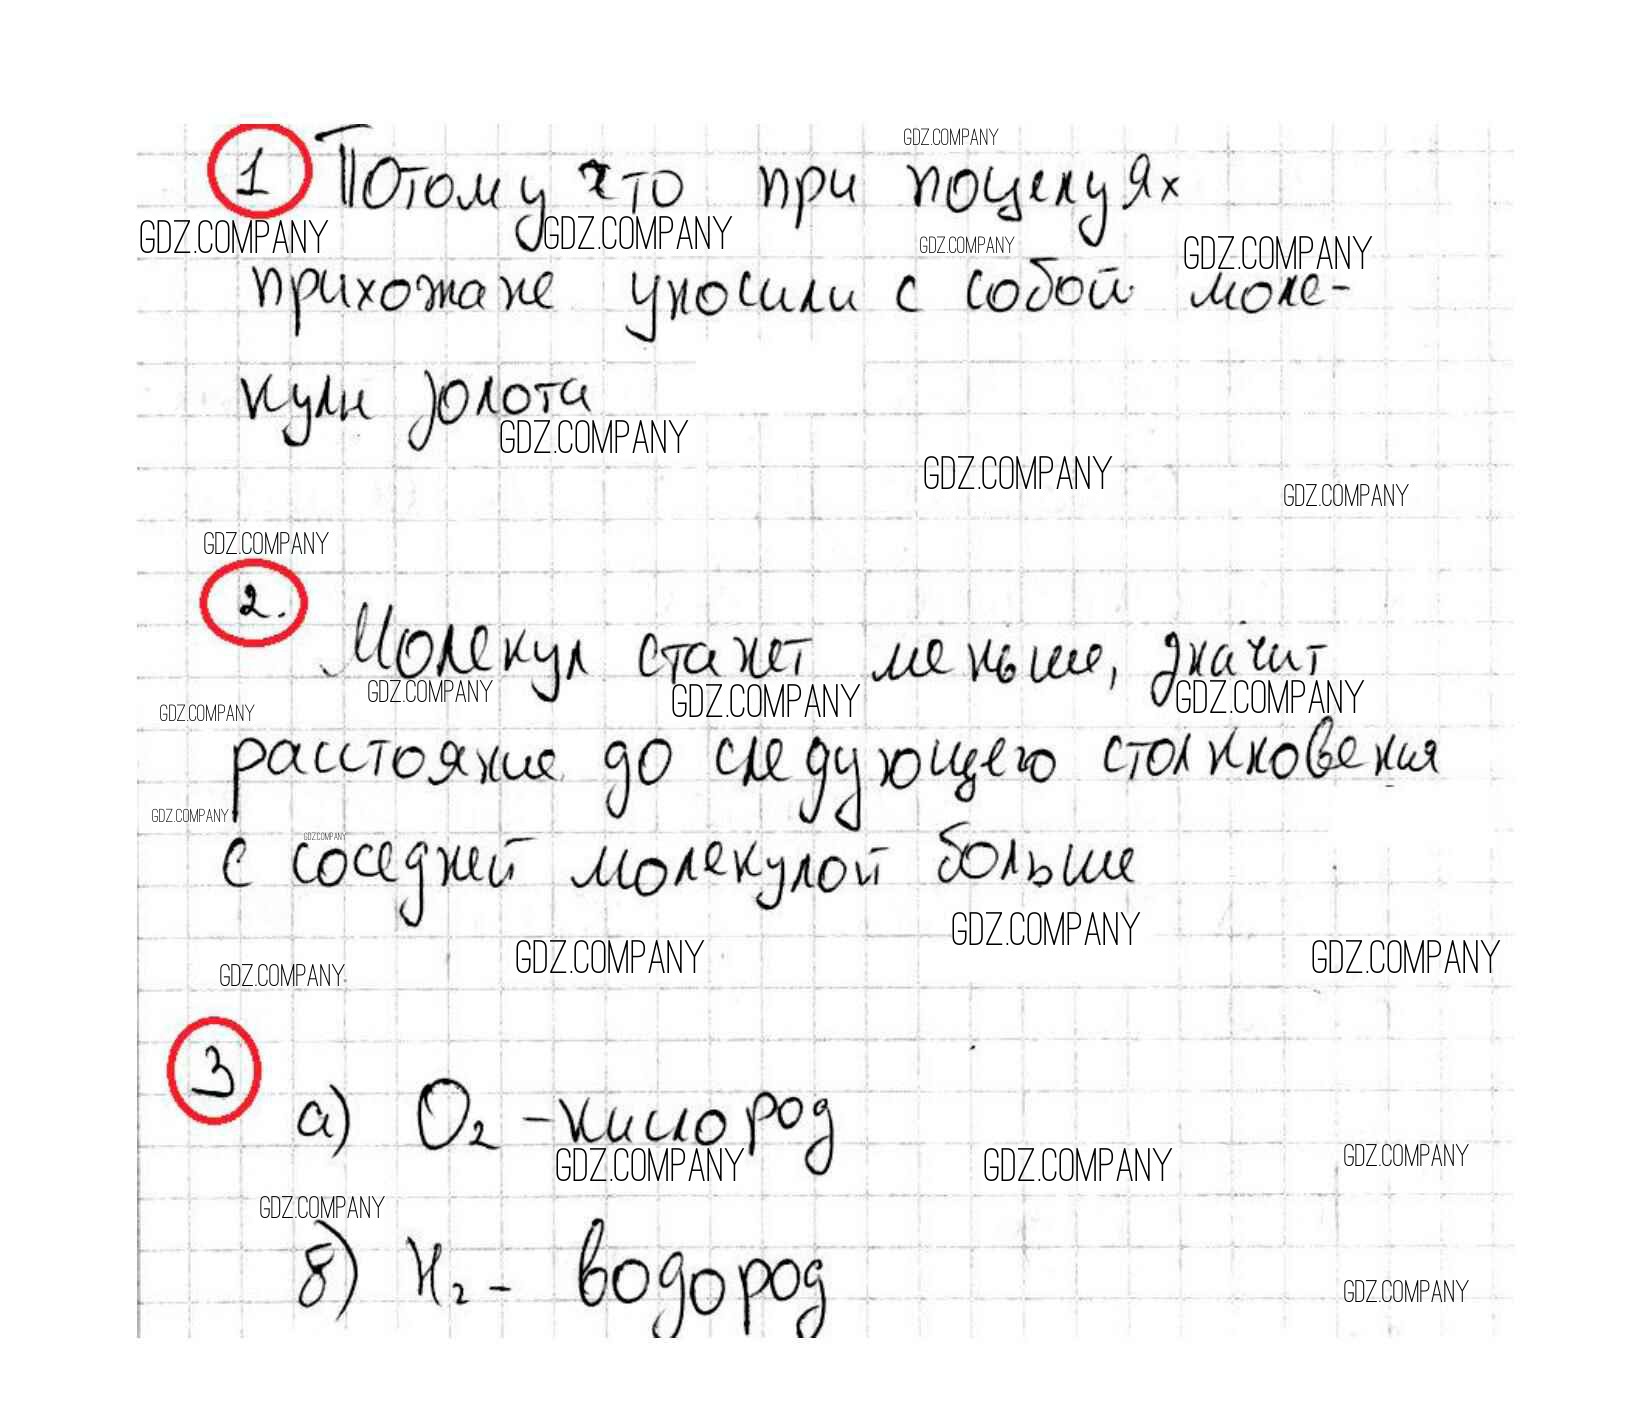 GDZ.COMPANY
1 Потому что при поцелуях
GDZ.COMPANY GDZ.COMPANY GDZ.COMPANY GDZ.COMPANY
прихожане уносили с собой моле-
кулы золота
GDZ.COMPANY
GDZ.COMPANY GDZ.COMPANY
GDZ.COMPANY
2. Молекул станет меньше, значит
GDZ.COMPANY GDZ.COMPANY GDZ.COMPANY GDZ.COMPANY
расстояние до следующего столкновения
GDZ.COMPANY GDZ.COMPANY
с соседней молекулой больше
GDZ.COMPANY
GDZ.COMPANY GDZ.COMPANY GDZ.COMPANY
3
а) O2 - кислород
GDZ.COMPANY GDZ.COMPANY GDZ.COMPANY
GDZ.COMPANY
б) H2 - водород
GDZ.COMPANY